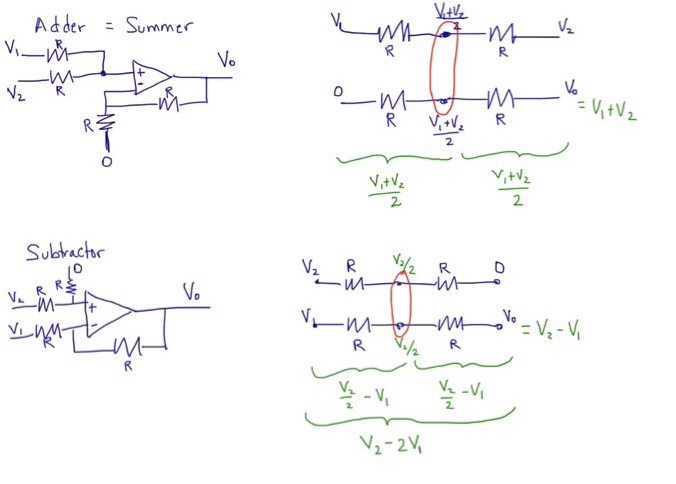 Adder = Summer
V1
R
V2
R
+
-
V0
R
R
0
V1
R
V1+V2
2
R
V2
0
R
V1+V2
2
R
V0
= V1+V2
V1+V2
2
V1+V2
2
Subtractor
0
R
V2
R
+
V1
R
-
V0
R
V2
R
V2/2
R
0
V1
R
V2/2
R
V0
= V2 - V1
V2
2
- V1
V2
2
- V1
V2 - 2V1